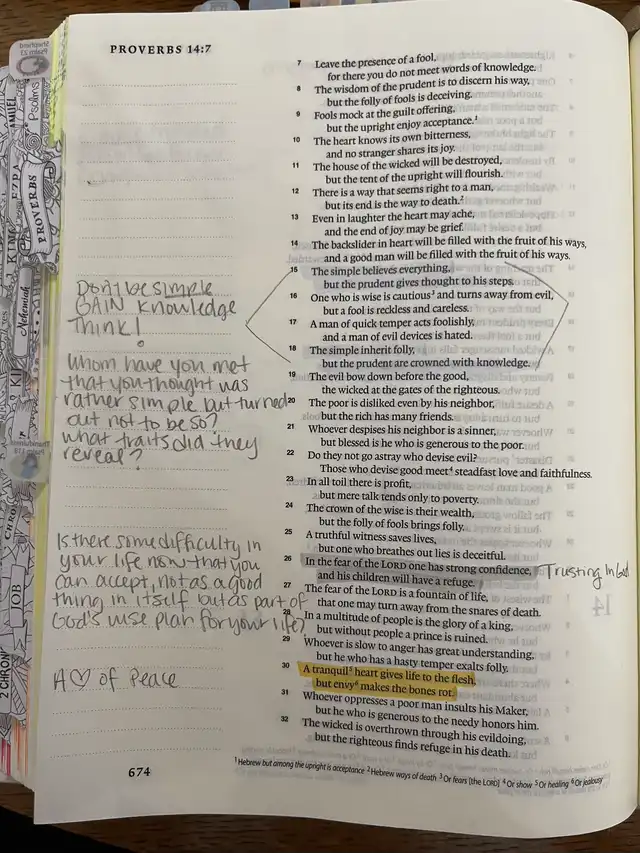 PROVERBS 14:7
7 Leave the presence of a fool,
for there you do not meet words of knowledge.
8 The wisdom of the prudent is to discern his way,
but the folly of fools is deceiving.
9 Fools mock at the guilt offering,
but the upright enjoy acceptance.¹
10 The heart knows its own bitterness,
and no stranger shares its joy.
11 The house of the wicked will be destroyed,
but the tent of the upright will flourish.
12 There is a way that seems right to a man,
but its end is the way to death.²
13 Even in laughter the heart may ache,
and the end of joy may be grief.
14 The backslider in heart will be filled with the fruit of his ways,
and a good man will be filled with the fruit of his ways.
15 The simple believes everything,
but the prudent gives thought to his steps.
16 One who is wise is cautious³ and turns away from evil,
but a fool is reckless and careless.
17 A man of quick temper acts foolishly,
and a man of evil devices is hated.
18 The simple inherit folly,
but the prudent are crowned with knowledge.
19 The evil bow down before the good,
the wicked at the gates of the righteous.
20 The poor is disliked even by his neighbor,
but the rich has many friends.
21 Whoever despises his neighbor is a sinner,
but blessed is he who is generous to the poor.
22 Do they not go astray who devise evil?
Those who devise good meet⁴ steadfast love and faithfulness.
23 In all toil there is profit,
but mere talk tends only to poverty.
24 The crown of the wise is their wealth,
but the folly of fools brings folly.
25 A truthful witness saves lives,
but one who breathes out lies is deceitful.
26 In the fear of the LORD one has strong confidence,
and his children will have a refuge.
27 The fear of the LORD is a fountain of life,
that one may turn away from the snares of death.
28 In a multitude of people is the glory of a king,
but without people a prince is ruined.
29 Whoever is slow to anger has great understanding,
but he who has a hasty temper exalts folly.
30 A tranquil⁵ heart gives life to the flesh,
but envy⁶ makes the bones rot.
31 Whoever oppresses a poor man insults his Maker,
but he who is generous to the needy honors him.
32 The wicked is overthrown through his evildoing,
but the righteous finds refuge in his death.
Don't be simple
GAIN knowledge
Think!
Whom have you met
that you thought was
rather simple but turned
out not to be so?
What traits did they
reveal?
Is there some difficulty in
your life now that you
can accept, not as a good
thing in itself but as part of
God's wise plan for your life?
A ♡ of Peace
Trusting In God
674
¹ Hebrew but among the upright is acceptance ² Hebrew ways of death ³ Or fears [the LORD] ⁴ Or show ⁵ Or healing ⁶ Or jealousy
Shepherd
Psalm 23
Psalms
PROVERBS
EZRA
Nehemiah
JOB
2 CHRON